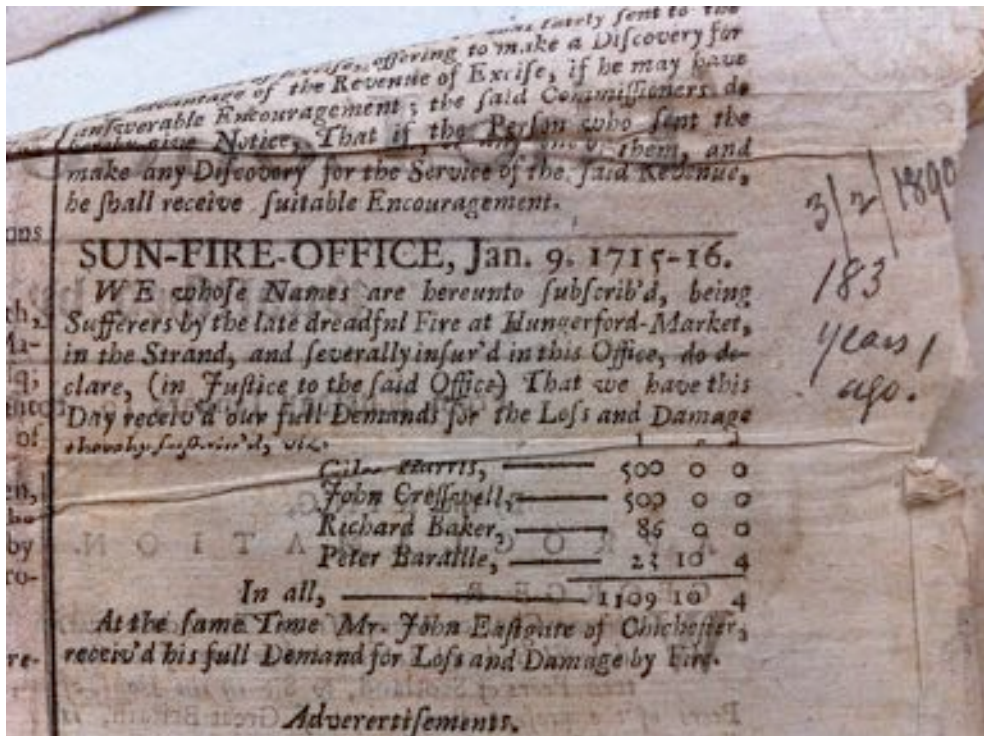 lately sent to the
offering to make a Discovery for
of the Revenue of Excise, if he may have
answerable Encouragement; the said Commissioners do
hereby give Notice, That if the Person who sent the
them, and
make any Discovery for the Service of the said Revenue,
he shall receive suitable Encouragement.
SUN-FIRE-OFFICE, Jan. 9. 1715-16.
WE whose Names are hereunto subscrib'd, being
Sufferers by the late dreadful Fire at Hungerford-Market,
in the Strand, and severally insur'd in this Office, do de-
clare, (in Justice to the said Office) That we have this
Day receiv'd our full Demands for the Loss and Damage
thereby sustain'd, viz.
Harris, —— 500 0 0
John Cresswell, —— 500 0 0
Richard Baker, —— 86 0 0
Peter Bardille, —— 23 10 4
In all, —— 1109 10 4
At the same Time Mr. John Eastgate of Chichester,
receiv'd his full Demand for Loss and Damage by Fire.
Adverertisements.
3/2/1890
183
years
ago.